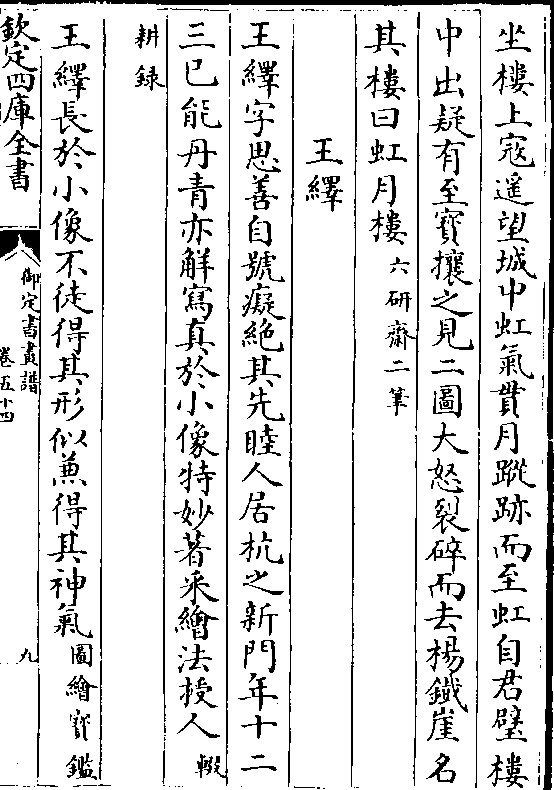 坐樓上寇遥望城中虹氣貫月蹤跡而至虹自君璧樓
中出疑有至寳攘之見二圖大怒裂碎而去楊鐵崖名
其樓曰虹月樓六研齋二筆
王繹
王繹字思善自號癡絶其先睦人居杭之新門年十二
三已能丹青亦解寫真於小像特妙著采繪法授人輟
耕録
王繹長於小像不徒得其形似兼得其神氣圖繪寳鑑
欽定四庫全書
御定書畫譜
卷五十四
九